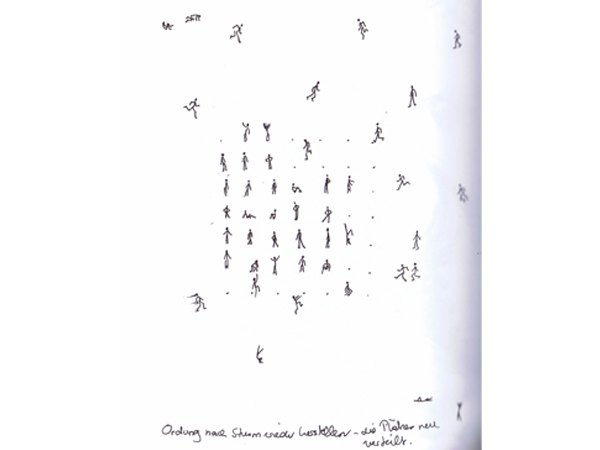 Ordung nach Sturm wieder herstellen - die Plätze neu
verteilt.